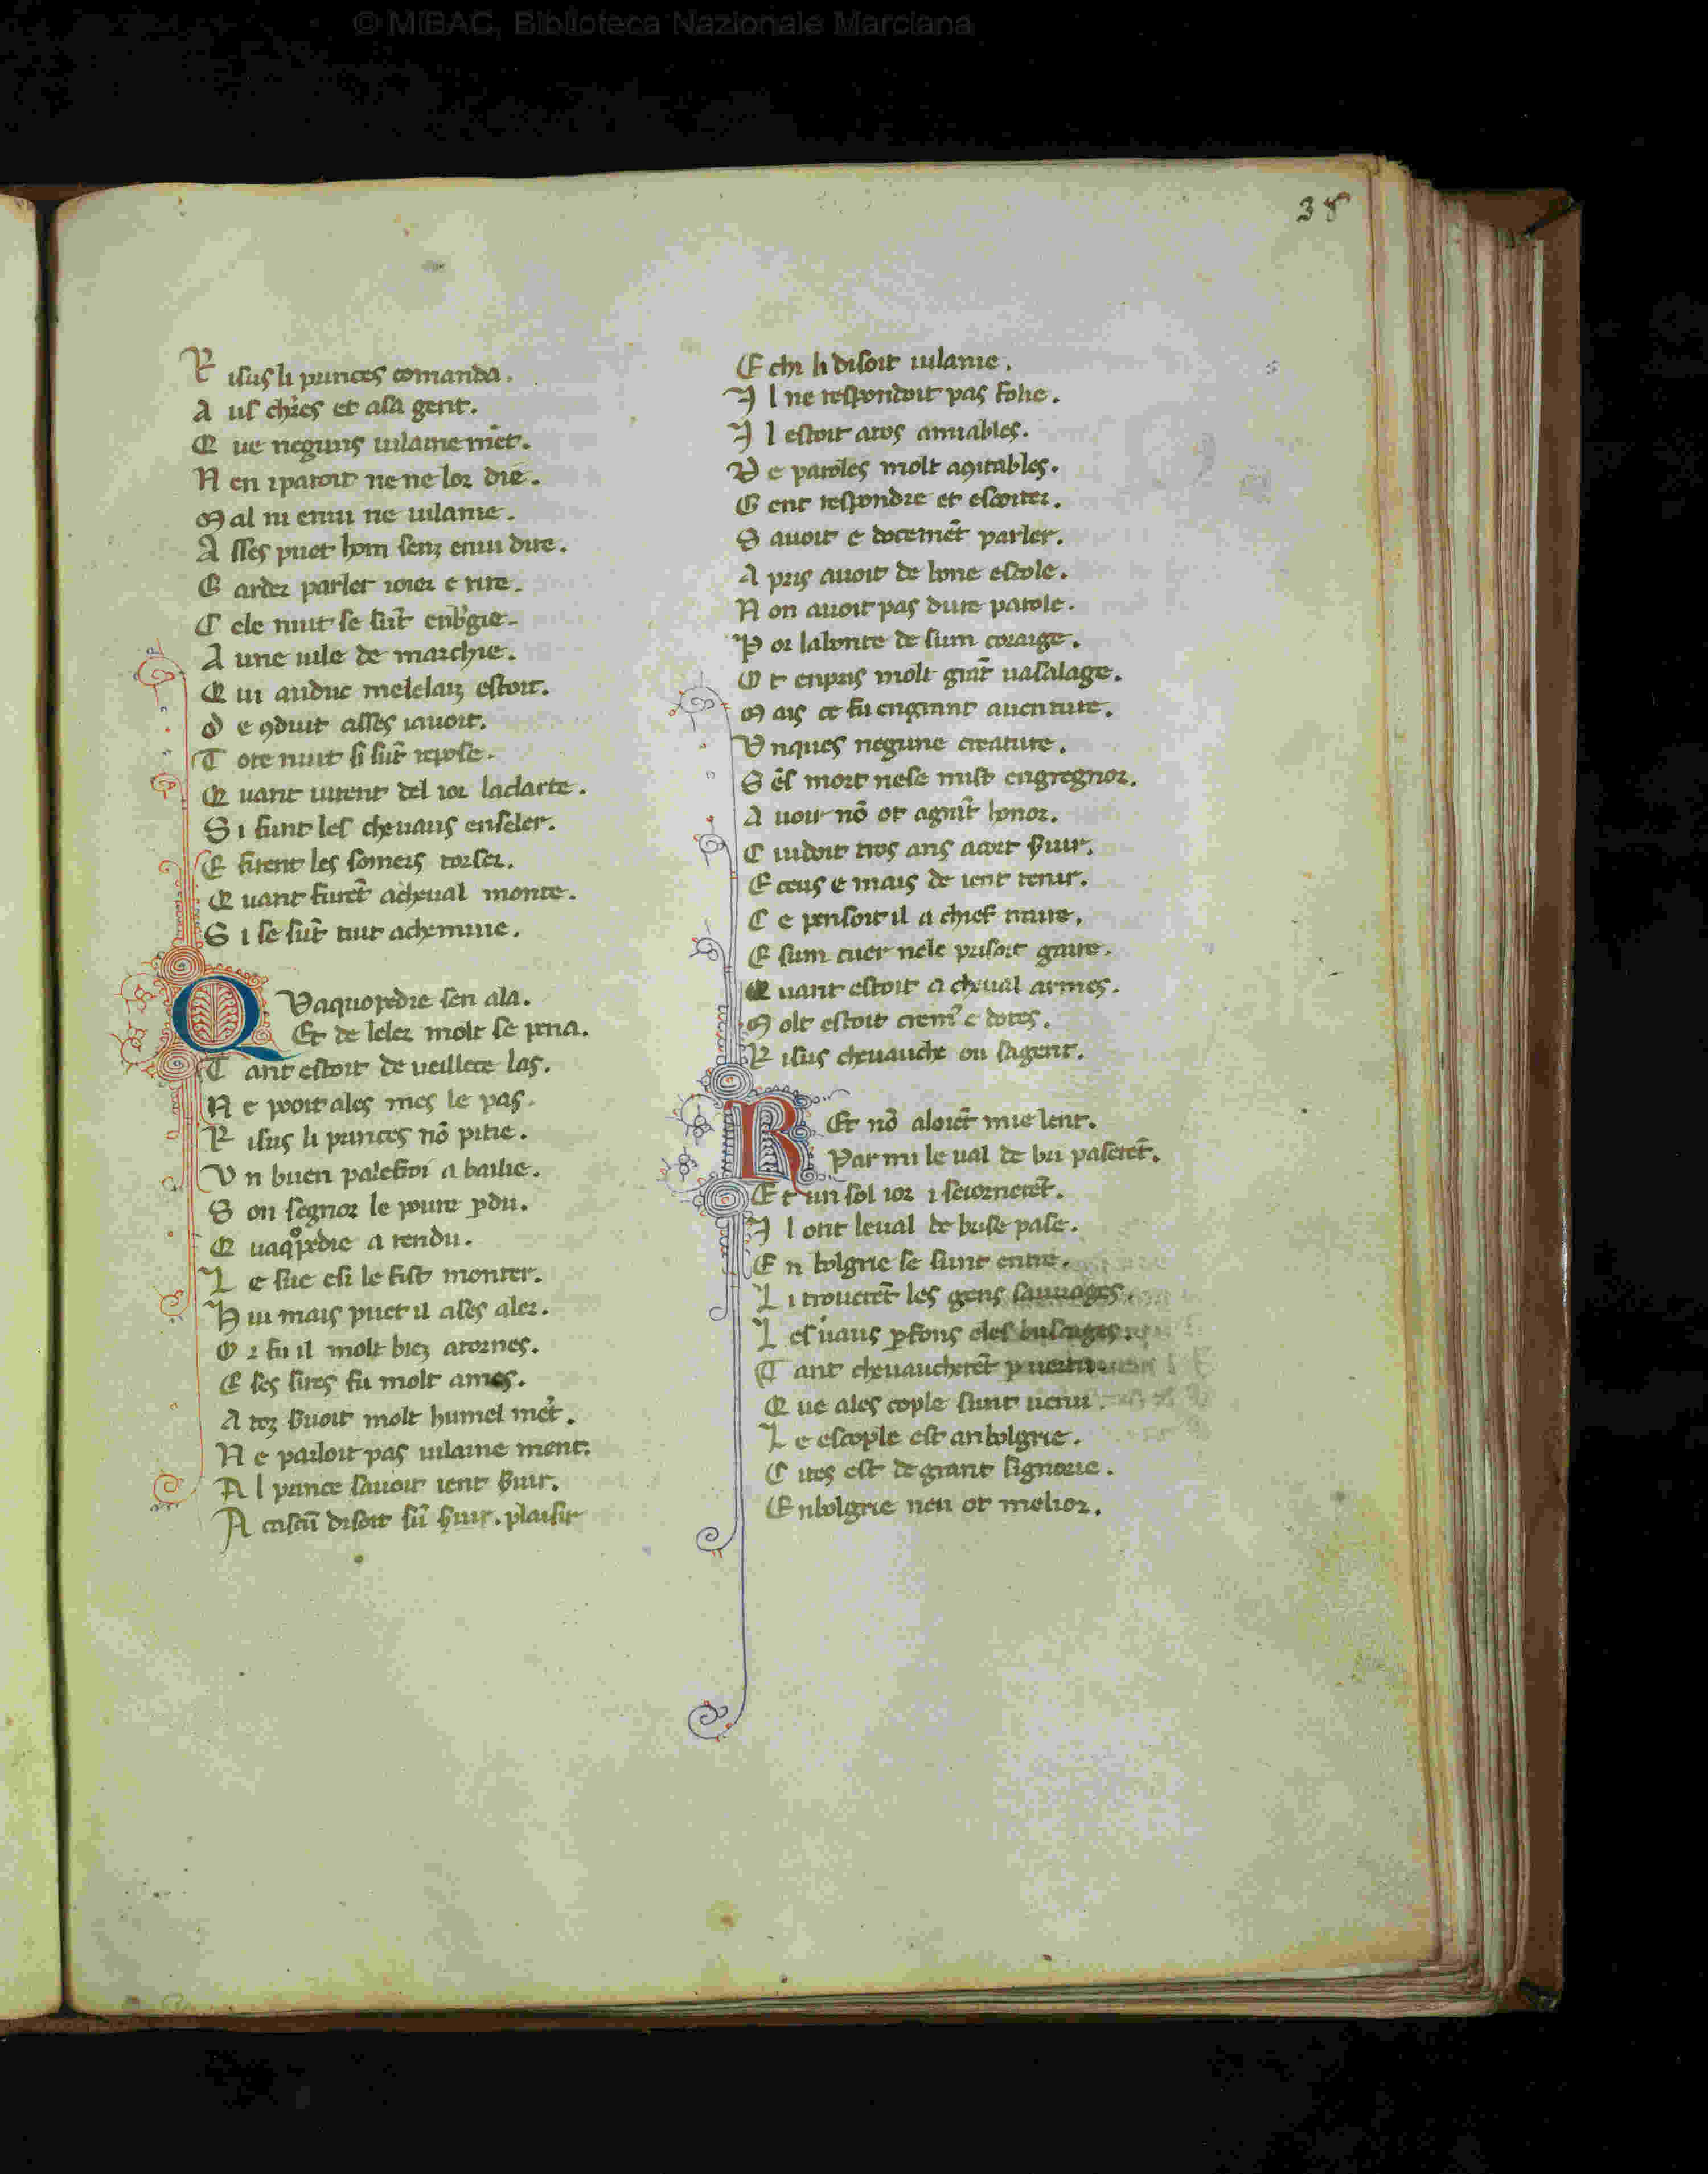 © MiBAC, Biblioteca Nazionale Marciana
38
R isus li princes comanda.
A us ch'rs et asa gent.
Q ue neguns uilaine mēt.
N en iparoit ne ne lor die.
M al ni enui ne uilanie.
A sses puet hom senz enui dire.
G arder parler ioier e rire.
C ele nuit se sūt enb'gie.
A une uile de marchie.
Q ui auduc melelanz estoit.
D e ꝯduit asses iauoit.
T ote nuit si sūt repose.
Q uant uirent del ior laclarte.
S i funt les cheuaus enseler.
E firent les somers torser.
Q uant furēt acheual monte.
S i se sūt tuit achemine.
Q Vaquopedre sen ala.
Et de leler molt se pena.
T ant estoit de ueillece las.
N e pooit ales mes le pas.
R isus li princes nō pitie.
V n buen palefroi a bailie.
S on segnor le poure ꝑdu.
Q uaqͦpedre a rendu.
L e sue esi le fist monter.
H ui mais puet il ases aler.
O r fu il molt biez atornes.
E ses sires fu molt ames.
A toz s̄uoit molt humel mēt.
N e parloit pas uilaine ment.
A l prince sauoit ient s̄uir.
A cascū disoit sū s̄uir. plaisir
E chi li disoit uilanie.
I l ne respondoit pas folie.
I l estoit atos amiables.
D e paroles molt aꝯitables.
G ent respondre et escoiter.
S auoit e docemēt parler.
A pris auoit de bone escole.
N on auoit pas dure parole.
P or labonte de sum coraige.
O t enpris molt grāt uasalage.
M ais ce fu engrant auenture.
V nques negune creature.
S ēs mort nese mist engregnor.
A uoir nō ot agrāt honor.
C uidoit tros ans acort s̄uir.
E ceus e mais de ient tenir.
C e pensoit il a chief traire.
E sum cuer nele prisoit gaire.
Q uant estoit a cheual armes.
M olt estoit cremī e dotes.
R isus cheuauche ou sagent.
R Et nō aloiēt mie lent.
Par mi le ual de bu paserēt.
Et un sol ior i seiornerēt.
I l ont leual de buse pase.
E n bolgrie se sunt entre.
L i trouerēt les gens sauuages.
L es uaus ꝓfons eles buscages.
T ant cheuaucherēt ꝑ uertu
Q ue ales cople sunt uenu.
L e escople est anbolgrie.
C ites est de grant signorie.
E nbolgrie neu ot melior.